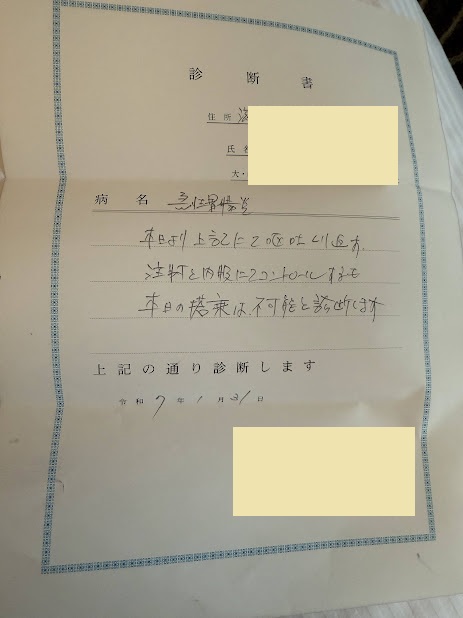 診断書
住所
氏名
大・
病名 急性胃腸炎
本日より上記にて嘔吐くり返す。
注射と内服にてコントロールするも
本日の搭乗は、不可能と診断します
上記の通り診断します
令和7年1月31日